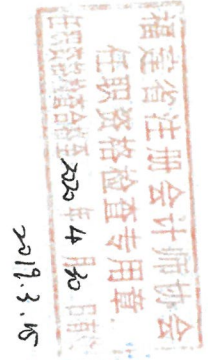 福建省注册会计师协会
任职资格检查专用章
任职资格检查合格至2020年4月30日有效
2019.3.15